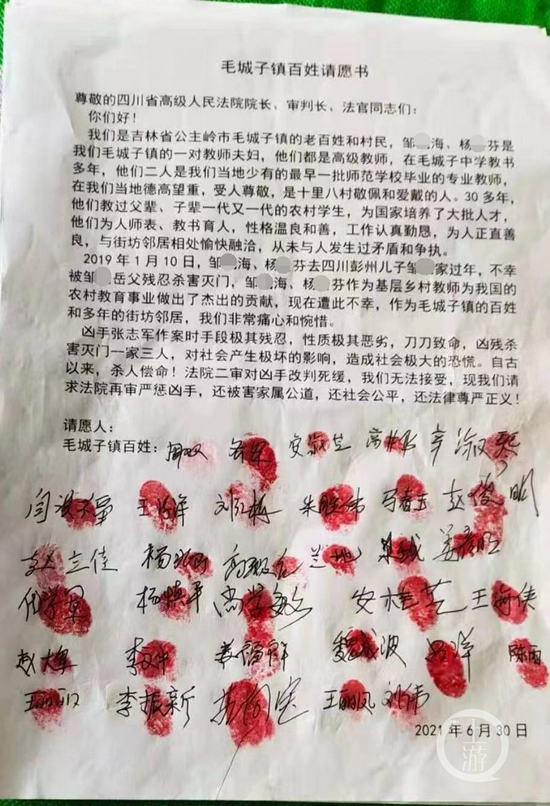 毛城子镇百姓请愿书
尊敬的四川省高级人民法院院长、审判长、法官同志们：
你们好！
我们是吉林省公主岭市毛城子镇的老百姓和村民，邹海、杨芬是
我们毛城子镇的一对教师夫妇，他们都是高级教师，在毛城子中学教书
多年，他们二人是我们当地少有的最早一批师范学校毕业的专业教师，
在我们当地德高望重，受人尊敬，是十里八村敬佩和爱戴的人。30多年，
他们教过父辈、子辈一代又一代的农村学生，为国家培养了大批人才，
他们为人师表、教书育人，性格温良和善，工作认真勤恳，为人正直善
良，与街坊邻居相处愉快融洽，从未与人发生过矛盾和争执。
2019年1月10日，邹海、杨芬去四川彭州儿子邹家过年，不幸
被邹岳父残忍杀害灭门，邹海、杨芬作为基层乡村教师为我国的
农村教育事业做出了杰出的贡献，现在遭此不幸，作为毛城子镇的百姓
和多年的街坊邻居，我们非常痛心和惋惜。
凶手张志军作案时手段极其残忍，性质极其恶劣，刀刀致命，凶残杀
害灭门一家三人，对社会产生极坏的影响，造成社会极大的恐慌。自古
以来，杀人偿命！法院二审对凶手改判死缓，我们无法接受，现我们请
求法院再审严惩凶手，还被害家属公道，还社会公平，还法律尊严正义！
请愿人：
毛城子镇百姓：
朱 马 赵俊明
赵立佳 杨
杨 安桂芝 王海侠
赵大军 李 波 洋 陈
王丽 李振新 王丽凤 刘伟
2021年6月30日
上游